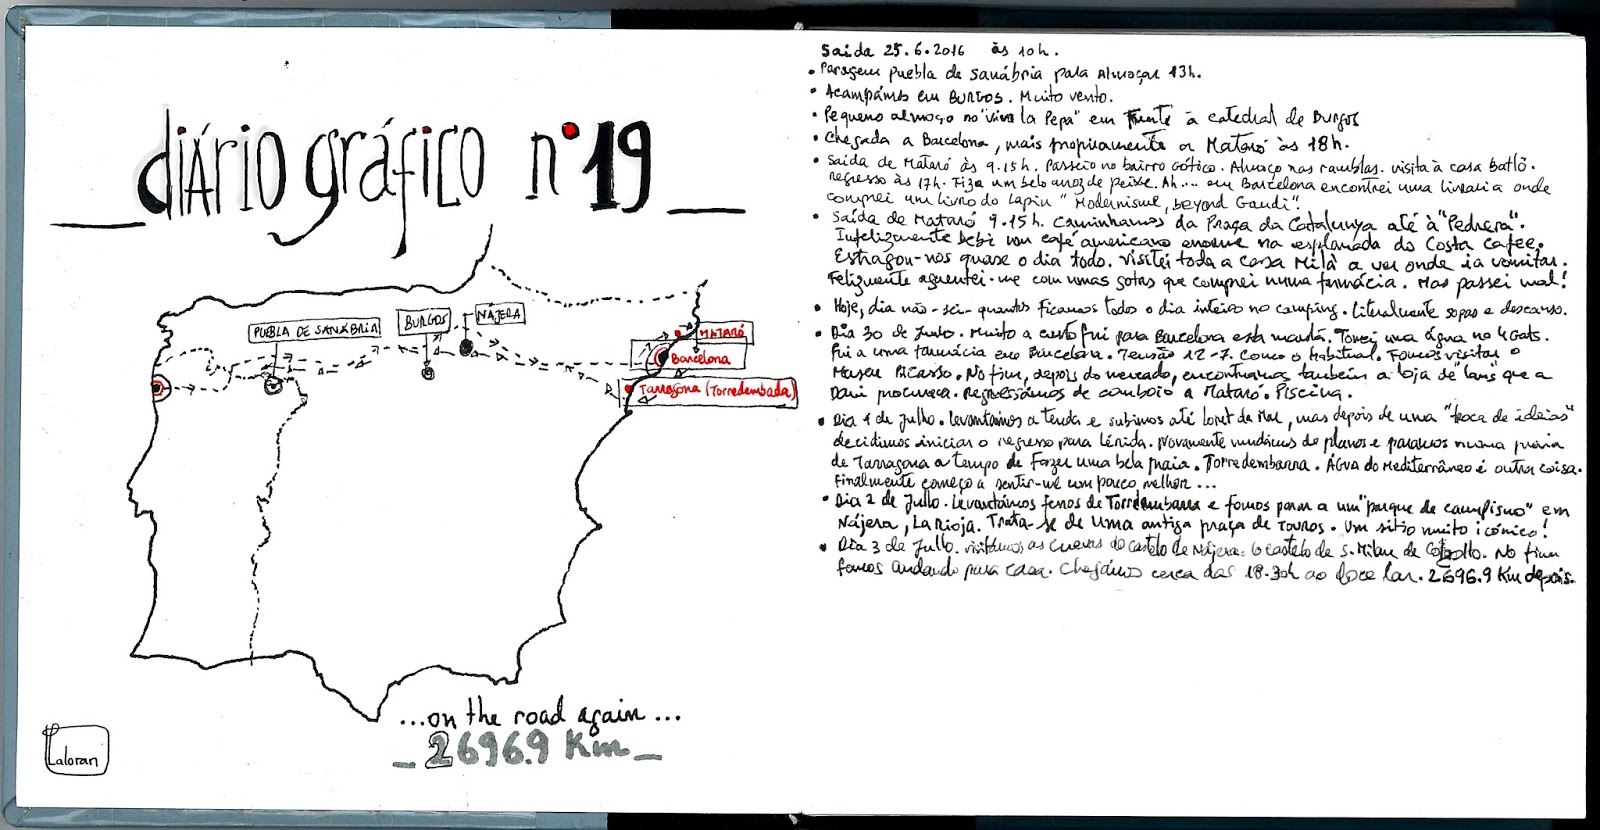 diário gráfico nº 19
PUEBLA DE SANÁBRIA
BURGOS
NÁJERA
MATARÓ
Barcelona
Tarragona (Torredembada)
...on the road again...
2696.9 Km
Laloran
Saída 25.6.2016 às 10h.
• Paragem puebla de sanábria para Almoçar 13h.
• Acampámos em BURGOS. Muito vento.
• Pequeno almoço no "viva la Pepa" em frente à catedral de Burgos
• Chegada a Barcelona, mais propriamente a Mataró às 18h.
• Saída de Mataró às 9.15h. Passeio no bairro gótico. Almoço nas ramblas. visita à casa batlò.
regresso às 17h. Fiz um belo arroz de peixe. Ah... em Barcelona encontrei uma livraria onde
comprei um livro do Lapin "Modernisme, beyond Gaudi".
• Saída de Mataró 9.15h. Caminhamos da Praça da Catalunya até à "Pedrera".
Infelizmente bebi um café americano enorme na esplanada do Costa Cafee.
Estragou-nos quase o dia todo. Visitei toda a casa Milà a ver onde ia vomitar.
Felizmente aguentei-me com umas gotas que comprei numa farmácia. Mas passei mal!
• Hoje, dia não-sei-quantos ficamos todo o dia inteiro no camping. Literalmente sopas e descanso.
• Dia 30 de Junho. Muito a custo fui para Barcelona esta manhã. Tomei uma água no 4 Gats.
Fui a uma farmácia em Barcelona. Tensão 12-7. Como o habitual. Fomos visitar o
Museu Picasso. No fim, depois do mercado, encontramos também a loja de "lans" que a
Dani procurava. Regressámos de comboio a Mataró. Piscina.
• Dia 1 de Julho. Levantámos a tenda e subimos até loret da Mar, mas depois de uma "troca de ideias"
decidimos iniciar o regresso para Lérida. Novamente mudámos de planos e paramos numa praia
de Tarragona a tempo de fazer uma bela praia. Torredembarra. ÁGUA do Mediterrâneo é outra coisa.
Finalmente começo a sentir-me um pouco melhor...
• Dia 2 de Julho. Levantámos ferros de Torredembarra e fomos para a um "parque de campismo" em
Nájera, La Rioja. Trata-se de uma antiga praça de touros. Um sítio muito icónico!
• Dia 3 de Julho. visitámos as cuevas do castelo de Nájera. O castelo de S. Milan de No fim
fomos andando para casa. Chegámos cerca das 18.30h ao doce lar. 2696.9 Km depois.